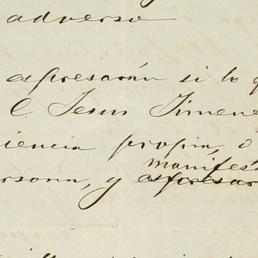 adverso
espresarán si lo q
C. Jesus Jimene
iencia propia, ó
manifest
ersona, y espresar